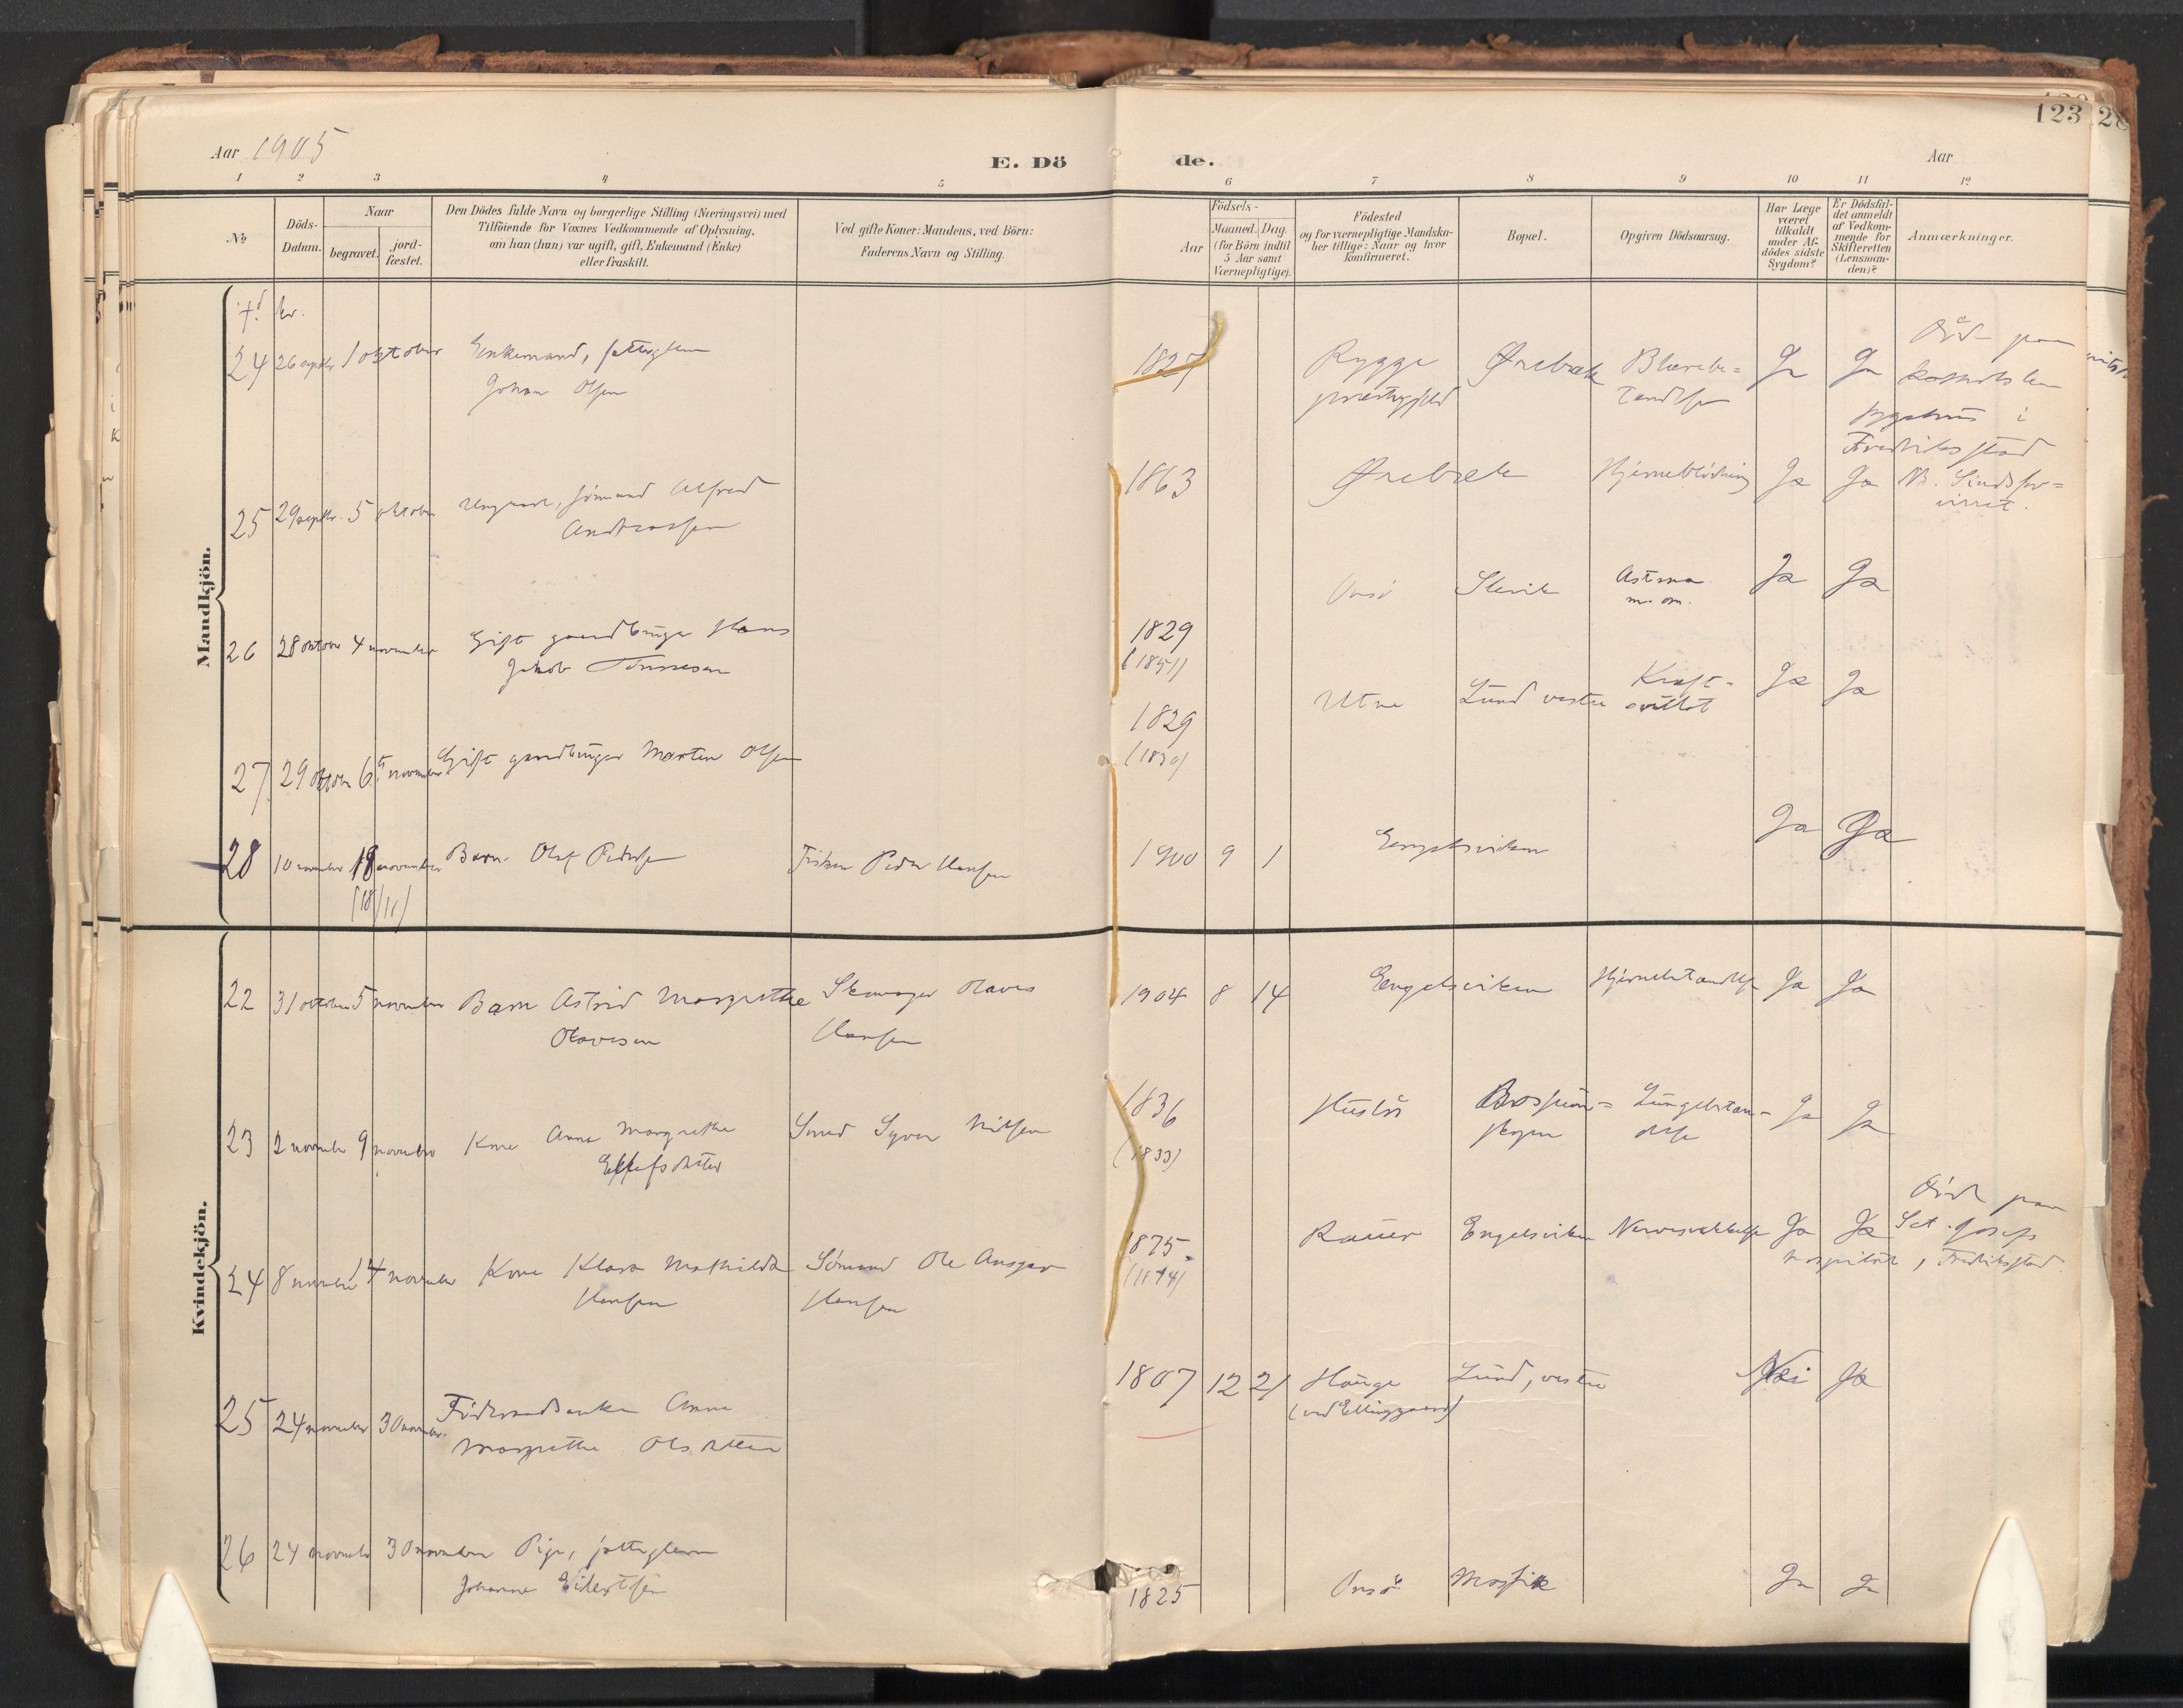 123
Aar 1905
E. Dö de.
Aar
1 2 3 4 5 6 7 8 9 10 11 12
№
Döds-Datum.
Naar
begravet.
jord-fæstet.
Den Dödes fulde Navn og borgerlige Stilling (Næringsvei) med
Tilföiende for Voxnes Vedkommende af Oplysning,
om han (hun) var ugift, gift, Enkemand (Enke)
eller fraskilt.
Ved gifte Koner: Mandens, ved Börn:
Faderens Navn og Stilling.
Födsels-
Aar
Maaned. Dag.
(for Börn indtil
5 Aar samt
Værnepligtige).
Födested
og for værnepligtige Mandska-
ber tillige: Naar og hvor
konfirmeret.
Bopæl.
Opgiven Dödsaarsag.
Har Læge
været
tilkaldt
under Af-
dödes sidste
Sygdom?
Er Dödsfal-
det anmeldt
af Vedkom-
mende for
Skifteretten
(Lensman-
den)?
Anmærkninger.
Mandkjön.
24 26 septbr 1 oktober Enkemand, fattiglem 1827 Rygge Ørebæk Blærebe= Ja Ja Död paa
Johan Olsen præstegjeld tændelse
sygehus i
Fredriksstad
25 29 septbr. 5 oktober Ungkarl, sömand Alfred 1863 Ørebæk Hjerneblödning Ja Ja NB. Sindsfor=
Andreassen virret.
26 28 oktober 4 november Gift gaardbruger Hans 1829 Onsö Slevik Astma Ja Ja
Jakob Tönnesen (1851) m. m.
27 29 oktober 6 november Gift gaardbruger Morten Olsen 1829 Utne Lund vestre Kræft- Ja Ja
(1830) svulst
28 10 november 18 november Barn Olaf Pedersen Fisker Peder Hansen 1900 9 1 Engelsviken Ja Ja
(18/11)
Kvindekjön.
22 31 oktober 5 november Barn Astrid Margrethe Olaves 1904 8 14 Engelsviken Hjernebetændelse Ja Ja
Olavesen Hansen
23 2 november 9 november Kone Anne Margrethe Smed Syver Nilsen 1836 Husløs Lungebetæn- Ja Ja
Ellefsdatter (1833) skogen delse
24 8 november 14 november Kone Klara Mathilde Sömand Ole Ansgar 1875 Rauer Engelsviken Nervesvækkelse Ja Ja Död paa
Hansen Hansen Sct. Josefs
hospital, Fredriksstad.
25 24 november 30 novembr. Anne 1807 12 21 Hauge Lund, vestre Nei Ja
Margrethe Olsdatter (ved Elinggaard)
26 24 november 30 november Pige, fattiglem 1825 Onsö Ja Ja
Johanne Eilertsen